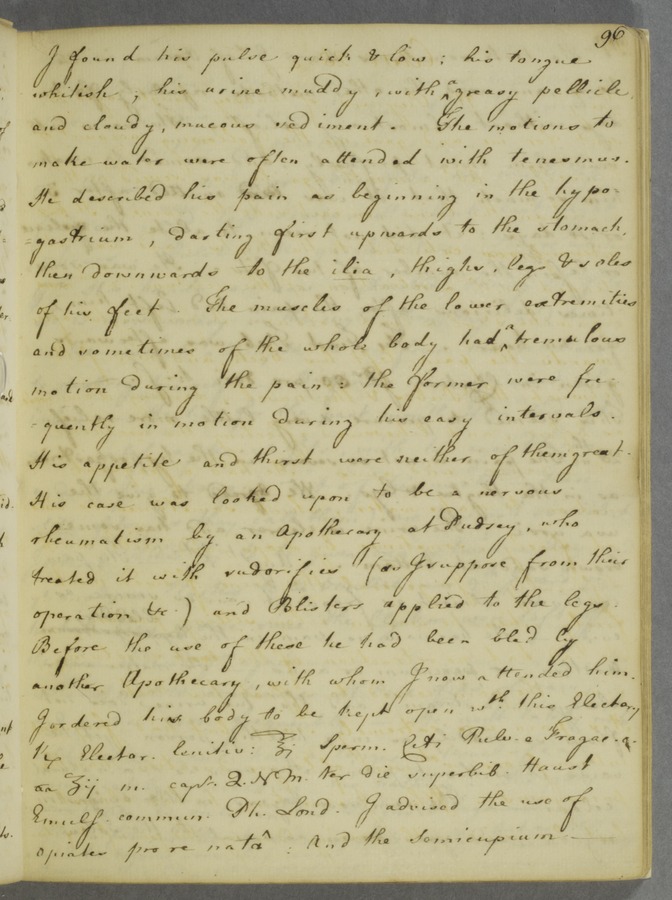 96
I found his pulse quick & low ; his tongue
whitish , his urine muddy , with ^a greasy pellicle
and cloudy, mucous sediment . The motions to
make water were often attended with tenesmus .
He described his pain as beginning in the hypo
=gastrium , darting first upwards to the stomach,
then downwards to the ilia , thighs , legs & soles
of his feet . The muscles of the lower extremities
and sometimes of the whole body had ^a tremulous
motion during the pain : the former were fre
=quently in motion during his easy intervals .
His appetite and thirst were neither of them great .
His case was looked upon to be a nervous
rheumatism by an Apothecary at Pudsey , who
treated it with sudorifics (as I suppose from their
operation &c ) and Blisters applied to the legs .
Before the use of these he had been bled by
another Apothecary , with whom I now attended him .
I ordered his body to be kept open wth. this Electary
℞ Elector. lenitiv: ℥j Sperm. Ceti Pulv. e Tragac. a.
aa ʒij m. cap. Q. N M. ter die superbib. Haust
Emuls. commun. Ph. Lond. I advised the use of
opiates pro re natâ : And the Semicupium